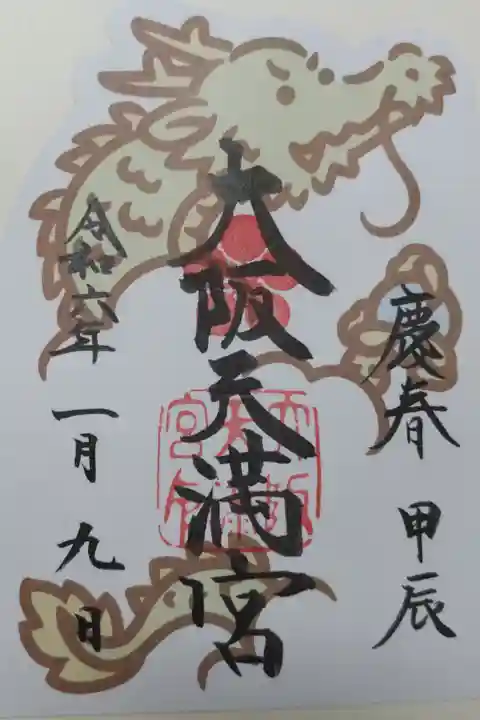 慶春 甲辰
大阪天満宮
令和六年一月九日